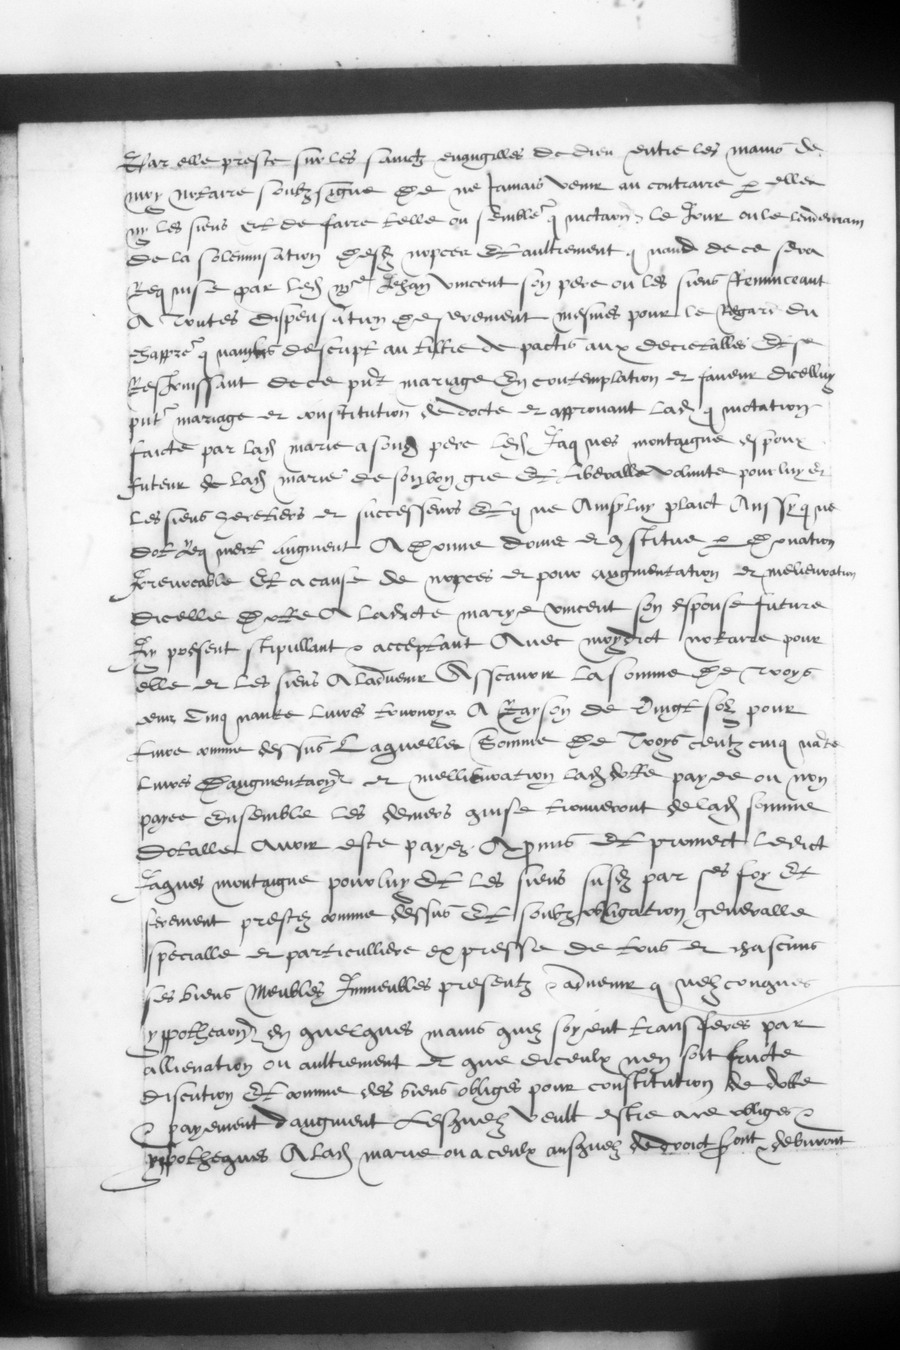 Par elle preste sur les sainctz evangilles de dieu entre les mains de
moy notaire soubzsigne de ne jamais venir au contraire p elle
ny les siens et de faire telle ou semble quictaon le jour ou le lendemain
de la solempnisation desd nopces et aultrement quand de ce sera
Requise par led me Jehan vincent son pere ou les siens Renunceant
A toutes dispensation de serement mesmes pour le Regard du
chappre quamvis descript au tiltre de pactis aux decretalles Et se
Resjouissant de ce pnt mariage En contemplation et faveur dicelluy
pnt mariage et constitution de docte et approuvant lad quictation
faicte par lad marie a sond pere led Jaques montaigne espoux
futeur de lad marie de son bon gre Et liberalle volunte pour luy et
les siens heretiers et successeurs Et que Ainsy luy plaict Aussy que
dot Requiert augment A donne donne et constitue p donation
Irrevocable Et a cause de nopces et pour augmentation et melieuration
dicelle dotte A ladicte marye vincent son espouse future
Icy present stipullant & acceptant Avec moydict notaire pour
elle et les siens A ladvenir Asscavoir la somme de Troys
cens Cinquante livres tournoys A Rayson de Vingt solz pour
livre comme dessus Laquelle Somme de Troys centz cinquate
livres daugmentaon et mellieuration lad dotte payee ou non
payee Ensemble les deniers quise trouveront de lad somme
dotalle Avoir este payez A pmis Et promect ledict
Jaques montaigne pour luy Et les siens susd par ses foy Et
serement prestez comme dessus Et soubz obligation generalle
specialle et particulliere expresse de tous et chascuns
ses biens Meubles Immeubles presentz & advenir quelzconques
yppothecaon En quelques mains quilz soyent transfferes par
allienation ou aultrement et que diceulx nen soit fructe
discution Et comme des biens obliges pour constitution de dotte
& payement daugment Lesquelz veult estre obliges &
yppotheques A lad marie ou a ceulx ausquelz de droict sont & debvront